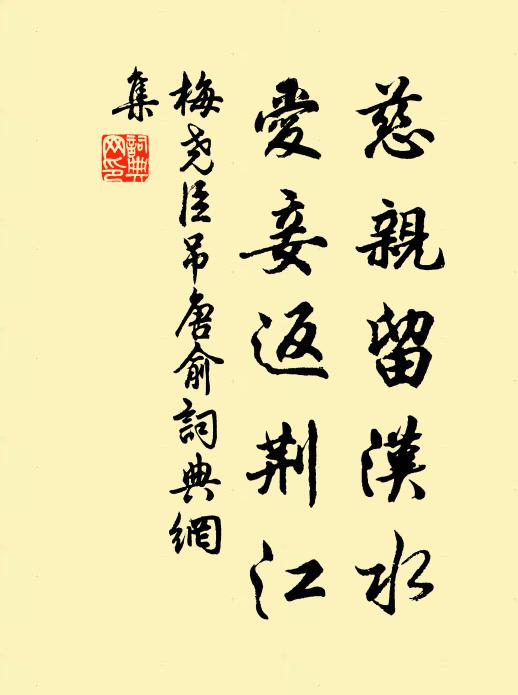 慈親留漢水
愛妾返荆江
梅堯臣吊唐俞詞典網
集
詞典网印